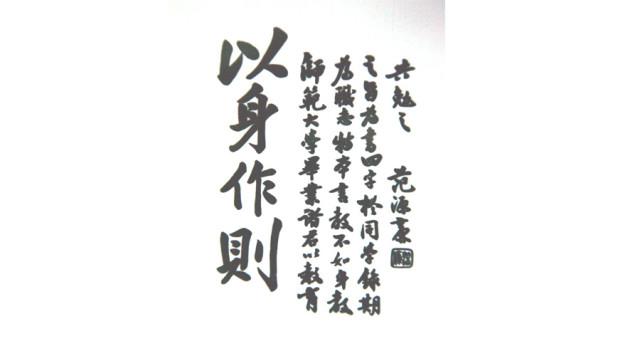 以身作則
師範大學畢業諸君以教育
為職志特本言教不如身教
之旨為書四字於同學錄期
共勉之 范源廉